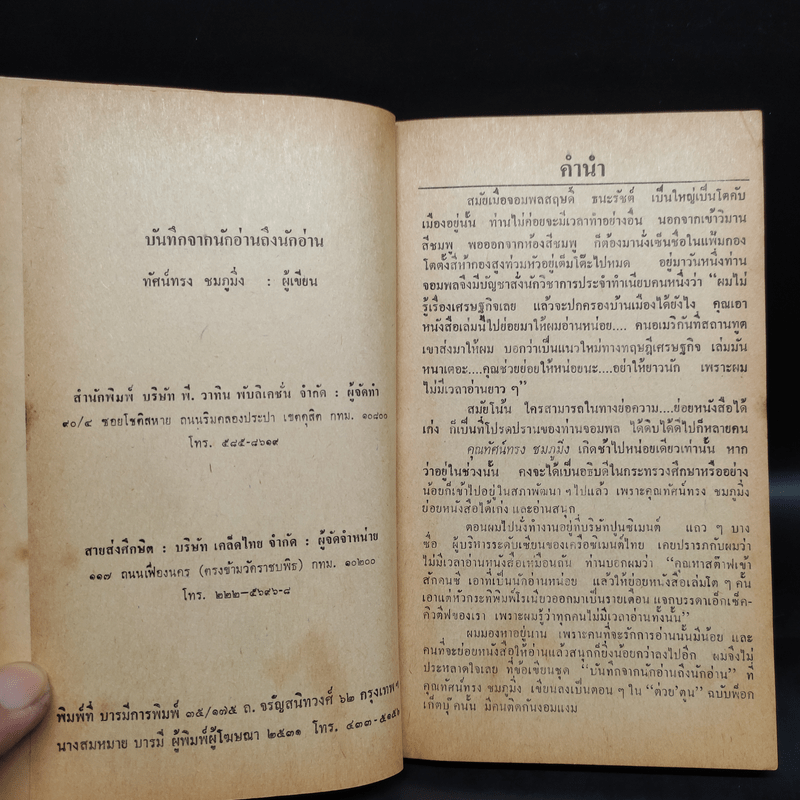 บันทึกจากนักอ่านถึงนักอ่าน
ทัศน์ทรง ชมภูมิ่ง : ผู้เขียน
สำนักพิมพ์ บริษัท พี. วาทิน พับลิเคชั่น จำกัด : ผู้จัดทำ
๙๐/๔ ซอยโชคสหาย ถนนริมคลองประปา เขตดุสิต กทม. ๑๐๘๐๐
โทร. ๕๘๕-๘๖๑๙
สายส่งศึกษิต : บริษัท เคล็ดไทย จำกัด : ผู้จัดจำหน่าย
๑๑๗ ถนนเฟื่องนคร (ตรงข้ามวัดราชบพิธ) กทม. ๑๐๒๐๐
โทร. ๒๒๒-๕๖๙๖-๘
พิมพ์ที่ บารมีการพิมพ์ ๓๕/๑๗๕ ถ. จรัญสนิทวงศ์ ๖๒ กรุงเทพฯ
นางสมหมาย บารมี ผู้พิมพ์ผู้โฆษณา ๒๕๓๑ โทร. ๔๓๓-๕๑๕๖
คำนำ
สมัยเมื่อจอมพลสฤษดิ์ ธนะรัชต์ เป็นใหญ่เป็นโตคับ
เมืองอยู่นั้น ท่านไม่ค่อยจะมีเวลาทำอย่างอื่น นอกจากเข้าวิมาน
สีชมพู พอออกจากห้องสีชมพู ก็ต้องมานั่งเซ็นชื่อในแฟ้มกอง
โตตั้งสี่ห้ากองสูงท่วมหัวอยู่เต็มโต๊ะไปหมด อยู่มาวันหนึ่งท่าน
จอมพลจึงมีบัญชาสั่งนักวิชาการประจำทำเนียบคนหนึ่งว่า “ผมไม่
รู้เรื่องเศรษฐกิจเลย แล้วจะปกครองบ้านเมืองได้ยังไง คุณเอา
หนังสือเล่มนี้ไปย่อยมาให้ผมอ่านหน่อย.... คนอเมริกันที่สถานทูต
เขาส่งมาให้ผม บอกว่าเป็นแนวใหม่ทางทฤษฎีเศรษฐกิจ เล่มมัน
หนาเตอะ....คุณช่วยย่อยให้หน่อยนะ...อย่าให้ยาวนัก เพราะผม
ไม่มีเวลาอ่านยาว ๆ”
สมัยโน้น ใครสามารถในทางย่อความ....ย่อยหนังสือได้
เก่ง ก็เป็นที่โปรดปรานของท่านจอมพล ได้ดิบได้ดีไปก็หลายคน
คุณทัศน์ทรง ชมภูมิ่ง เกิดช้าไปหน่อยเดียวเท่านั้น หาก
ว่าอยู่ในช่วงนั้น คงจะได้เป็นอธิบดีในกระทรวงศึกษาหรืออย่าง
น้อยก็เข้าไปอยู่ในสภาพัฒนา ๆ ไปแล้ว เพราะคุณทัศน์ทรง ชมภูมิ่ง
ย่อยหนังสือได้เก่ง และอ่านสนุก
ตอนผมไปนั่งทำงานอยู่ที่บริษัทปูนซิเมนต์ แถว ๆ บาง
ซื่อ ผู้บริหารระดับเซียนของเครือซิเมนต์ไทย เคยปรารภกับผมว่า
ไม่มีเวลาอ่านหนังสือเหมือนกัน ท่านบอกผมว่า “คุณหาสต๊าฟเข้า
สักคนซี เอาที่เป็นนักอ่านหน่อย แล้วให้ย่อยหนังสือเล่มโต ๆ คั้น
เอาแต่หัวกะทิพิมพ์โรเนียวออกมาเป็นรายเดือน แจกบรรดาเอ็กเซ็ค-
คิวตีฟของเรา เพราะผมรู้ว่าทุกคนไม่มีเวลาอ่านทั้งนั้น”
ผมมองหาอยู่นาน เพราะคนที่จะรักการอ่านนั้นมีน้อย และ
คนที่จะย่อยหนังสือให้อ่านแล้วสนุกก็ยิ่งน้อยกว่าลงไปอีก ผมจึงไม่
ประหลาดใจเลย ที่ข้อเขียนชุด “บันทึกจากนักอ่านถึงนักอ่าน” ที่
คุณทัศน์ทรง ชมภูมิ่ง เขียนลงเป็นตอน ๆ ใน “ต่วย'ตูน” ฉบับพ็อก
เก็ตบุ๊คนั้น มีคนติดกันงอมแงม